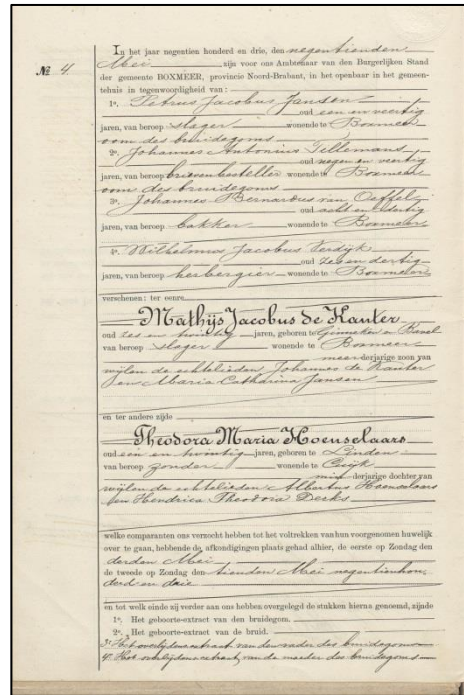 In het jaar negentien honderd en drie, den negentienden
Mei zijn voor ons Ambtenaar van den Burgerlijken Stand
№ 4.
der gemeente BOXMEER, provincie Noord-Brabant, in het openbaar in het gemeen-
tehuis in tegenwoordigheid van:
1°. Petrus Jacobus Jansen
oud een en veertig
jaren, van beroep slager wonende te Boxmeer
oom des bruidegoms
2°. Johannes Antonius Tillemans
oud negen en veertig
jaren, van beroep brievenbesteller wonende te Boxmeer
oom des bruidegoms
3°. Johannes Bernardus van Oeffel
oud acht en dertig
jaren, van beroep bakker wonende te Boxmeer
4°. Wilhelmus Jacobus Verdijk
oud zes en dertig
jaren, van beroep herbergier wonende te Boxmeer
verschenen: ter eenre
Mathijs Jacobus de Kanter
oud zes en twintig jaren, geboren te Ginneken en Bavel
van beroep slager wonende te Boxmeer
meerderjarige zoon van
wijlen de echtelieden Johannes de Kanter
en Maria Catharina Jansen
en ter andere zijde
Theodora Maria Hoenselaars
oud een en twintig jaren, geboren te Linden
van beroep zonder wonende te Cuijk
minderjarige dochter van
wijlen de echtelieden Albertus Hoenselaars
en Hendrica Theodora Derks
welke comparanten ons verzocht hebben tot het voltrekken van hun voorgenomen huwelijk
over te gaan, hebbende de afkondigingen plaats gehad alhier, de eerste op Zondag den
derden Mei
de tweede op Zondag den tienden Mei negentienhon-
derd en drie
en tot welk einde zij verder aan ons hebben overgelegd de stukken hierna genoemd, zijnde
1°. Het geboorte-extract van den bruidegom.
2°. Het geboorte-extract van de bruid.
3°. Het overlijdensextract van den vader des bruidegoms
4°. Het overlijdensextract van de moeder des bruidegoms